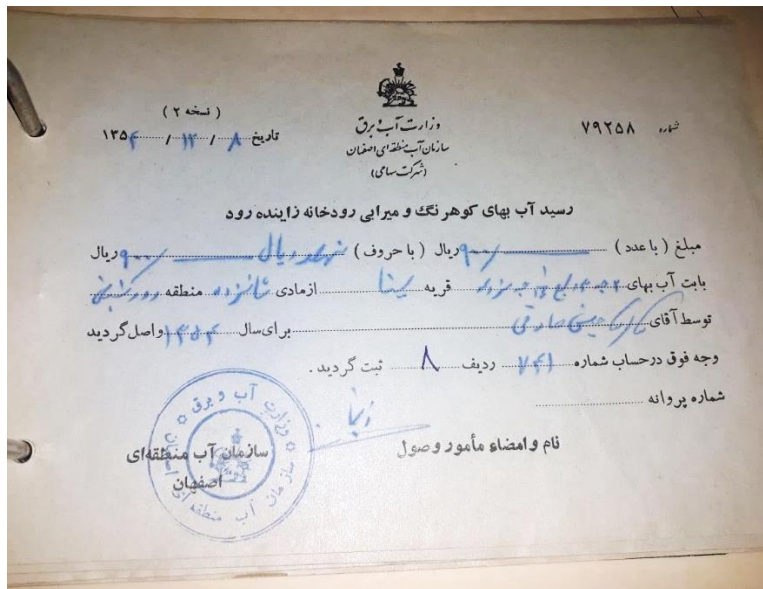 ( نسخه ۲ )
تاریخ ۸ / ۱۲ / ۱۳۵۴
وزارت آب و برق
سازمان آب منطقه‌ای اصفهان
(شرکت سهامی)
شماره ۷۹۲۵۸
رسید آب بهای کوهرنگ و میرابی رودخانه زاینده رود
مبلغ ( با عدد ) ۹۰۰/- ریال ( با حروف ) نهصد ریال ۹۰۰/- ریال
بابت آب بهای قریه از مادی شانزده منطقه
توسط آقای صادقی برای سال ۱۳۵۴ واصل گردید
وجه فوق در حساب شماره ۷۴۱ ردیف ۸ ثبت گردید .
شماره پروانه
نام و امضاء مأمور وصول
سازمان آب منطقه‌ای
اصفهان
وزارت آب و برق
سازمان آب منطقه ای اصفهان